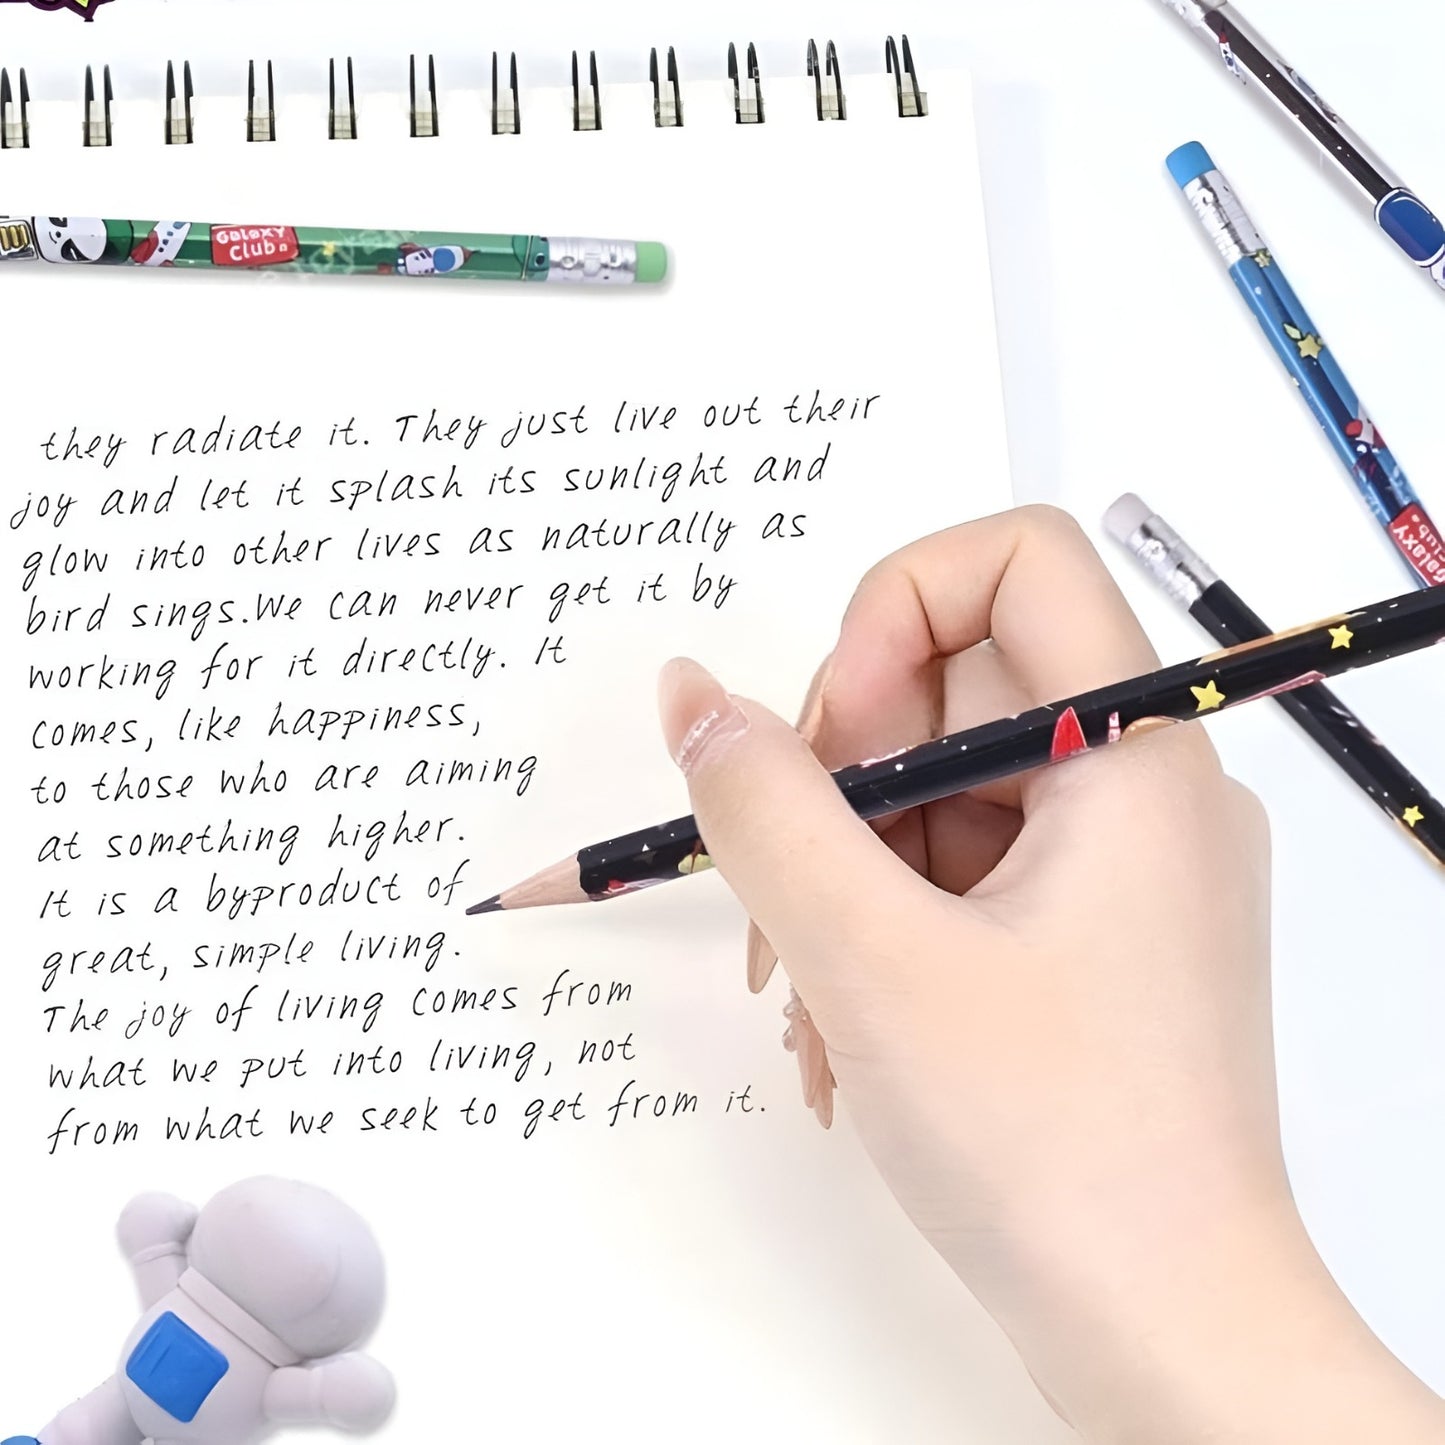 GaLaxy
Club
they radiate it. They just live out their
joy and let it splash its sunlight and
glow into other lives as naturally as
bird sings.We can never get it by
working for it directly. It
comes, like happiness,
to those who are aiming
at something higher.
It is a byproduct of
great, simple living.
The joy of living comes from
what we put into living, not
from what we seek to get from it.
GaLaxy
Club